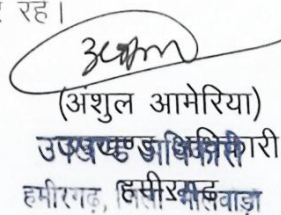 रहे।
(अंशुल आमेरिया)
उपखण्ड अधिकारी
हमीरगढ़
उपखण्ड अधिकारी
हमीरगढ़, जिला भीलवाड़ा